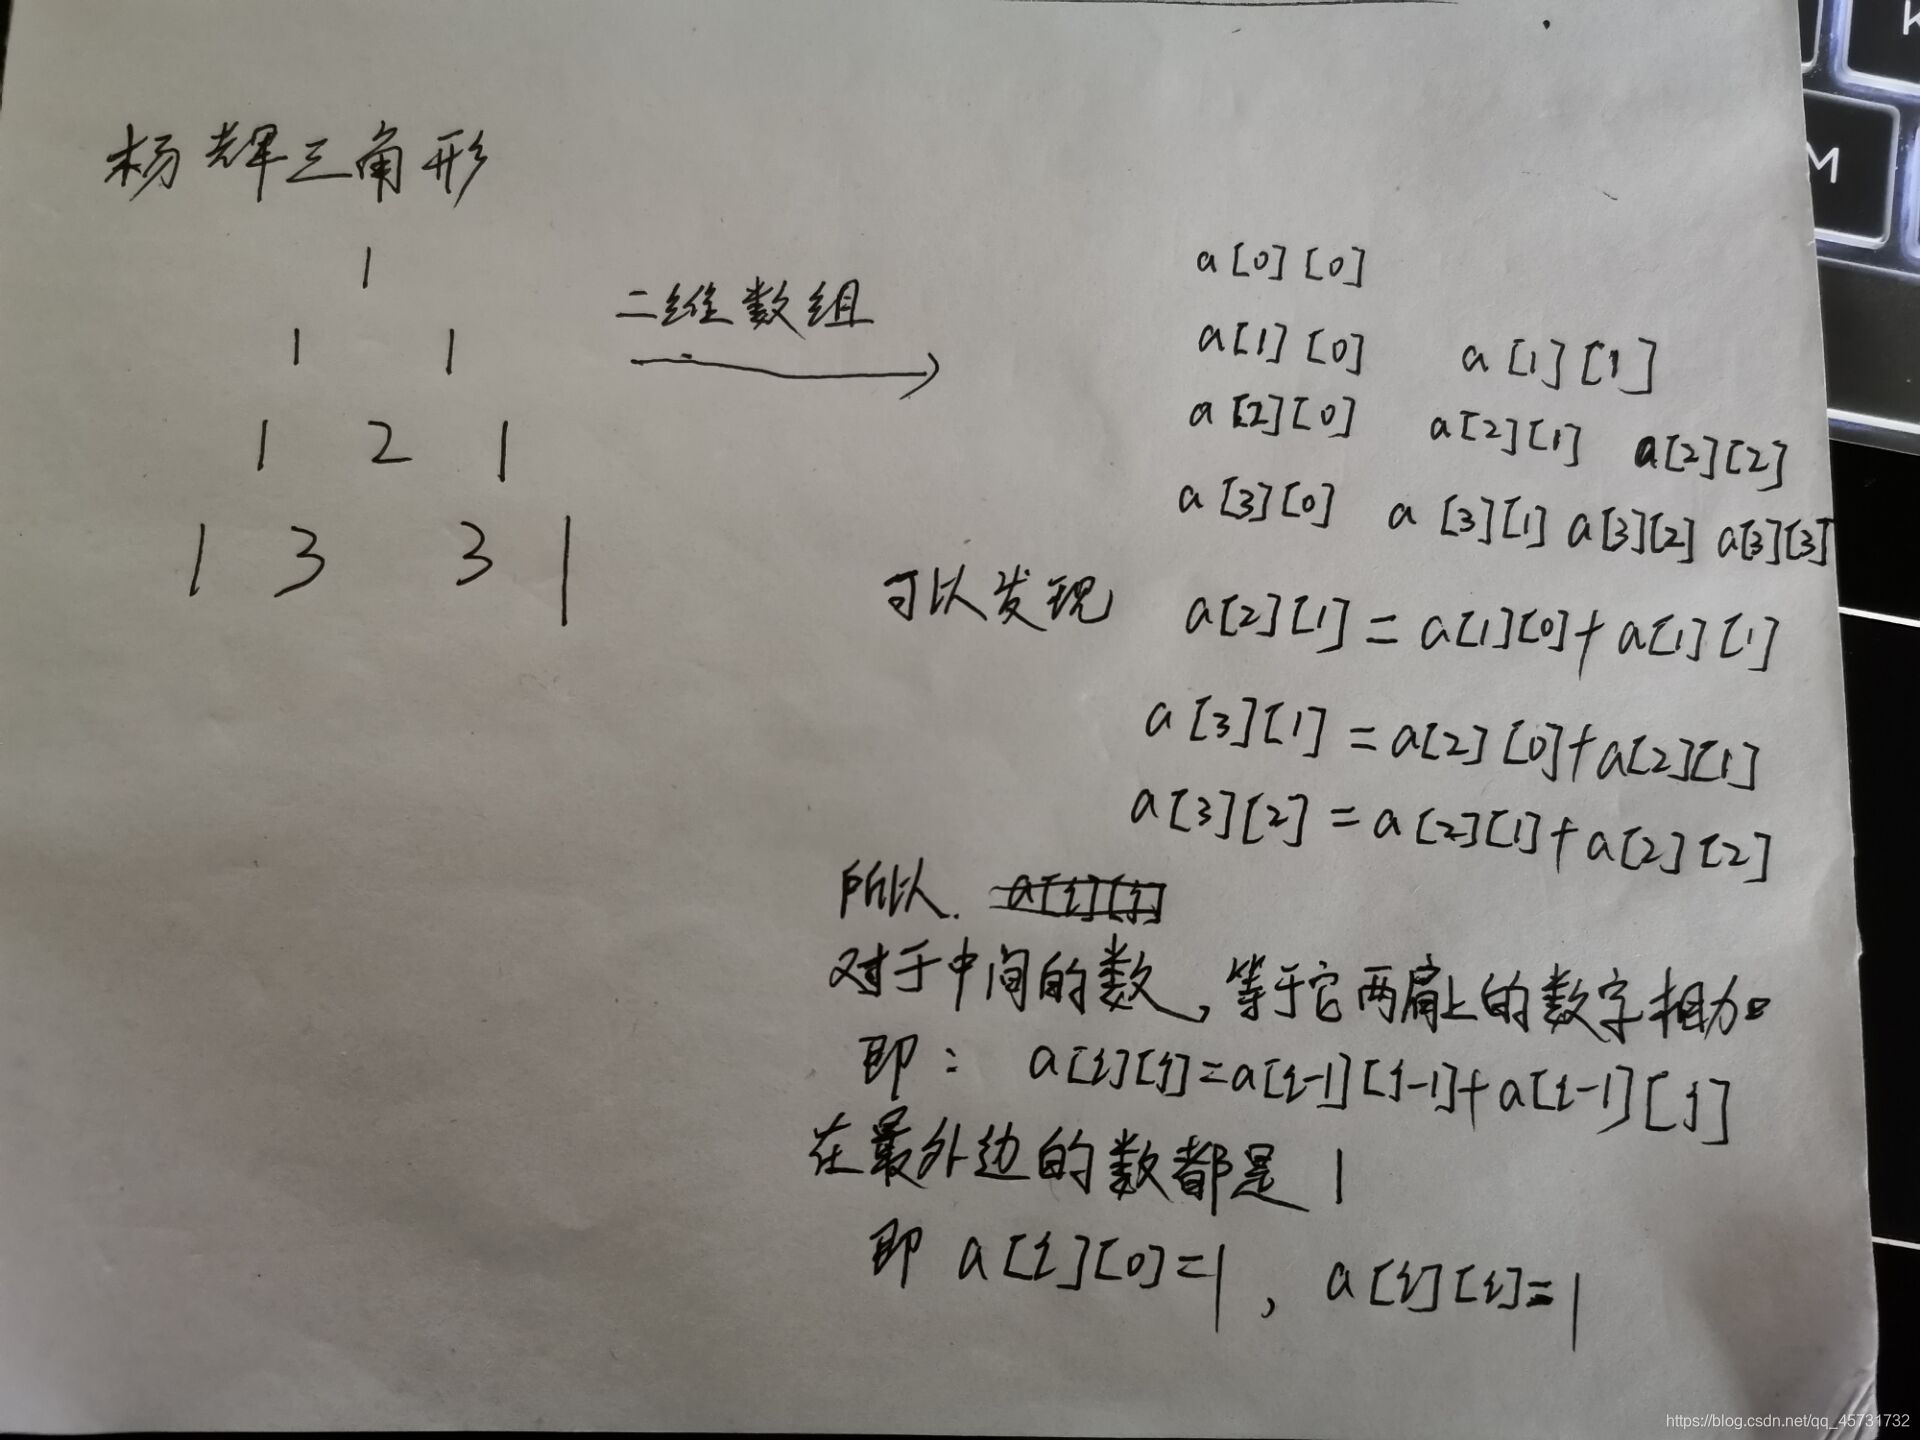 杨辉三角形
1
1 1
1 2 1
1 3 3 1
二维数组
a[0][0]
a[1][0] a[1][1]
a[2][0] a[2][1] a[2][2]
a[3][0] a[3][1] a[3][2] a[3][3]
可以发现 a[2][1]=a[1][0]+a[1][1]
a[3][1]=a[2][0]+a[2][1]
a[3][2]=a[2][1]+a[2][2]
所以. a[i][j]
对于中间的数,等于它两肩上的数字相加。
即: a[i][j]=a[i-1][j-1]+a[i-1][j]
在最外边的数都是 1
即 a[i][0]=1, a[i][i]=1
K
M
https://blog.csdn.net/qq_45731732